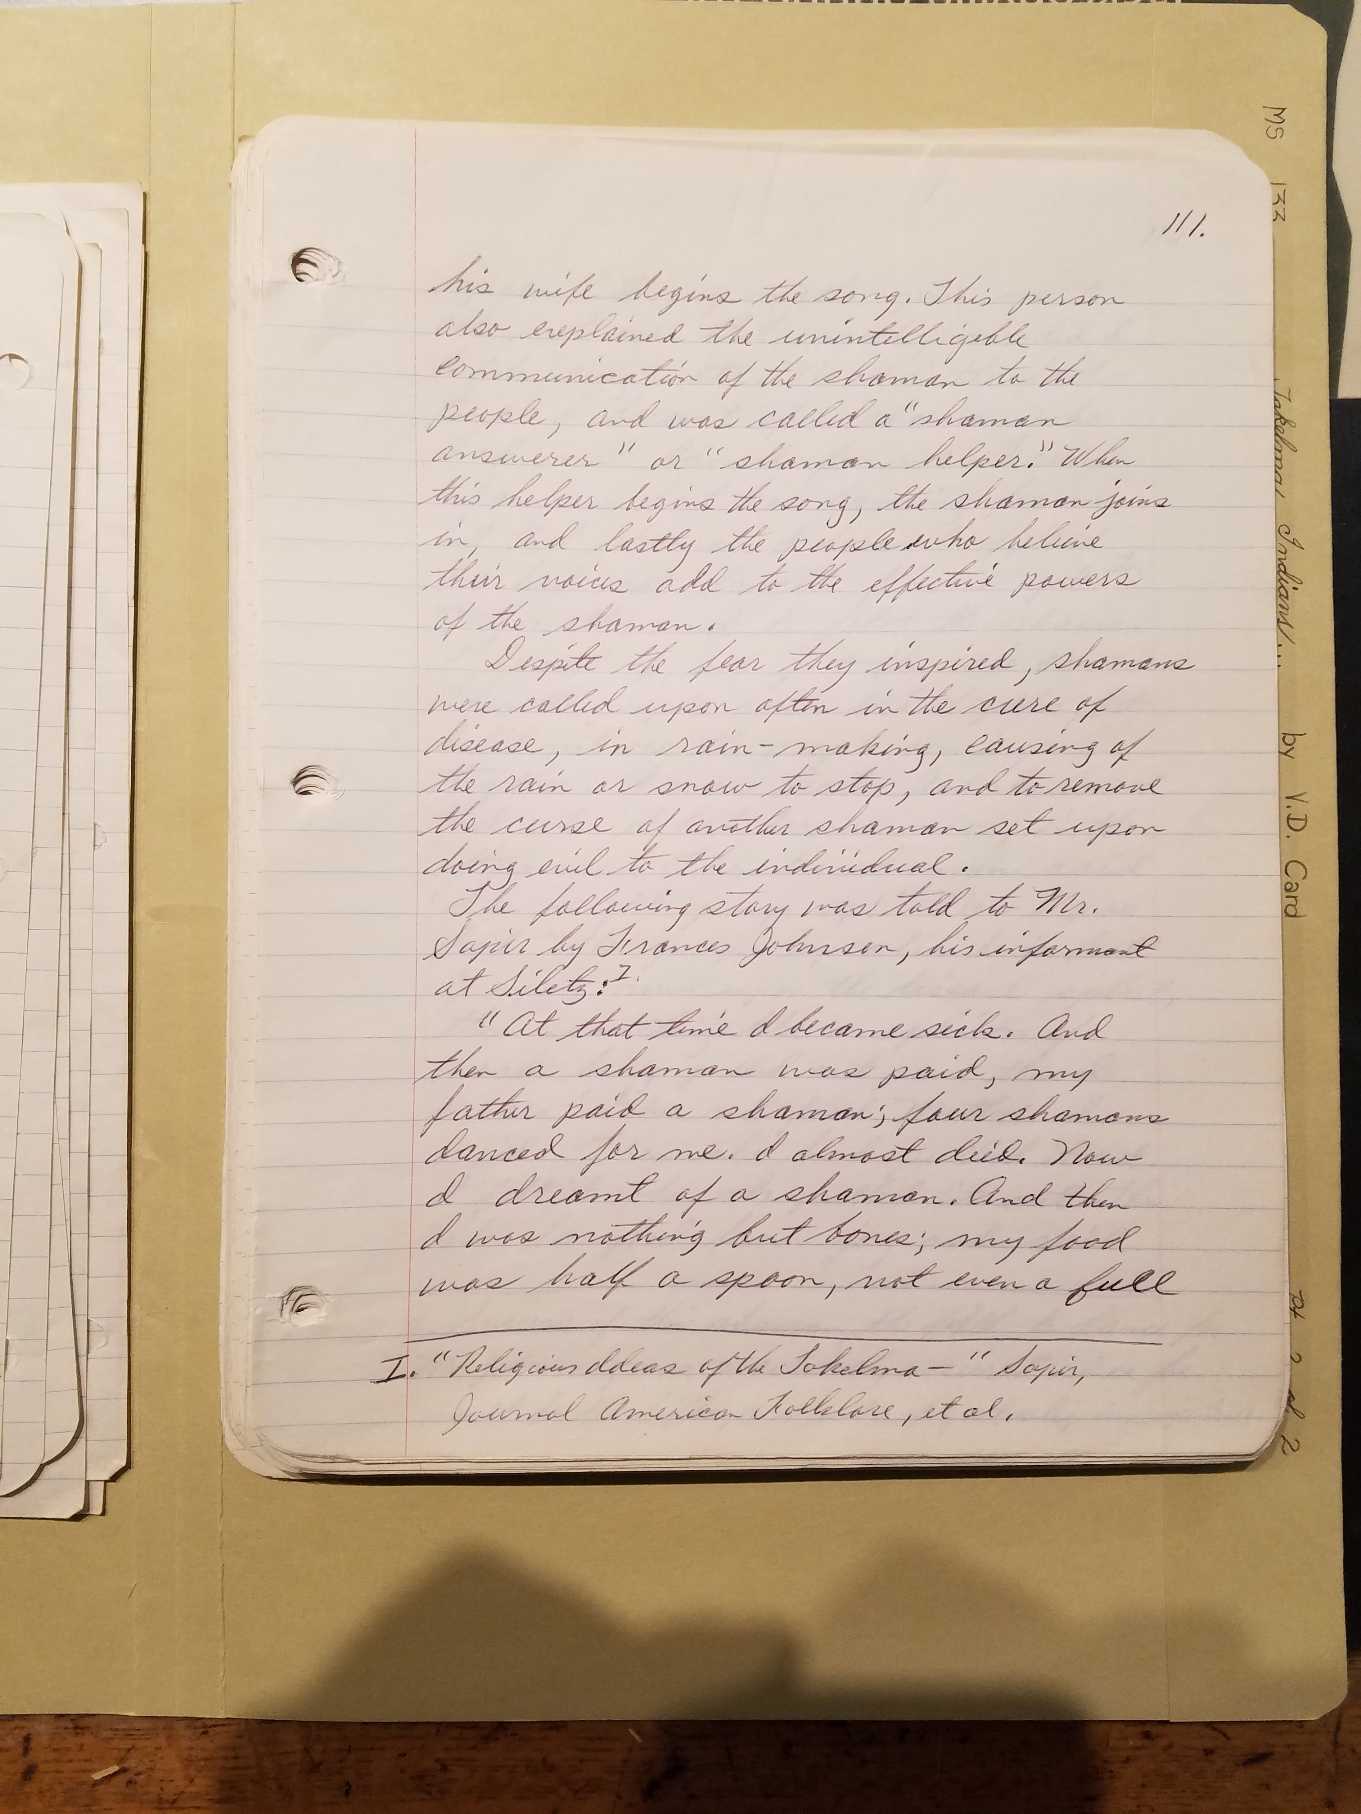 111.
his wife begins the song. This person
also explained the unintelligible
communication of the shaman to the
people, and was called a "shaman
answerer" or "shaman helper." When
this helper begins the song, the shaman joins
in, and lastly the people who believe
their voices add to the effective powers
of the shaman.
Despite the fear they inspired, shamans
were called upon often in the cure of
disease, in rain-making, causing of
the rain or snow to stop, and to remove
the curse of another shaman set upon
doing evil to the individual.
The following story was told to Mr.
Sapir by Frances Johnson, his informant
at Siletz: I.
"At that time I became sick. And
then a shaman was paid, my
father paid a shaman; four shamans
danced for me. I almost died. Now
I dreamt of a shaman. And then
I was nothing but bones; my food
was half a spoon, not even a full
I. "Religious Ideas of the Takelma—" Sapir,
Journal American Folklore, et al.
MS 133 Takelma Indians... by V.D. Card Pt 2 of 2